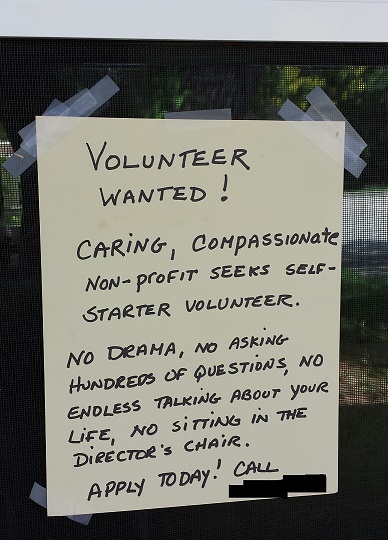 VOLUNTEER
WANTED!
CARING, COMPASSIONATE
NON-PROFIT SEEKS SELF-
STARTER VOLUNTEER.
NO DRAMA, NO ASKING
HUNDREDS OF QUESTIONS, NO
ENDLESS TALKING ABOUT YOUR
LIFE, NO SITTING IN THE
DIRECTOR'S CHAIR.
APPLY TODAY! CALL